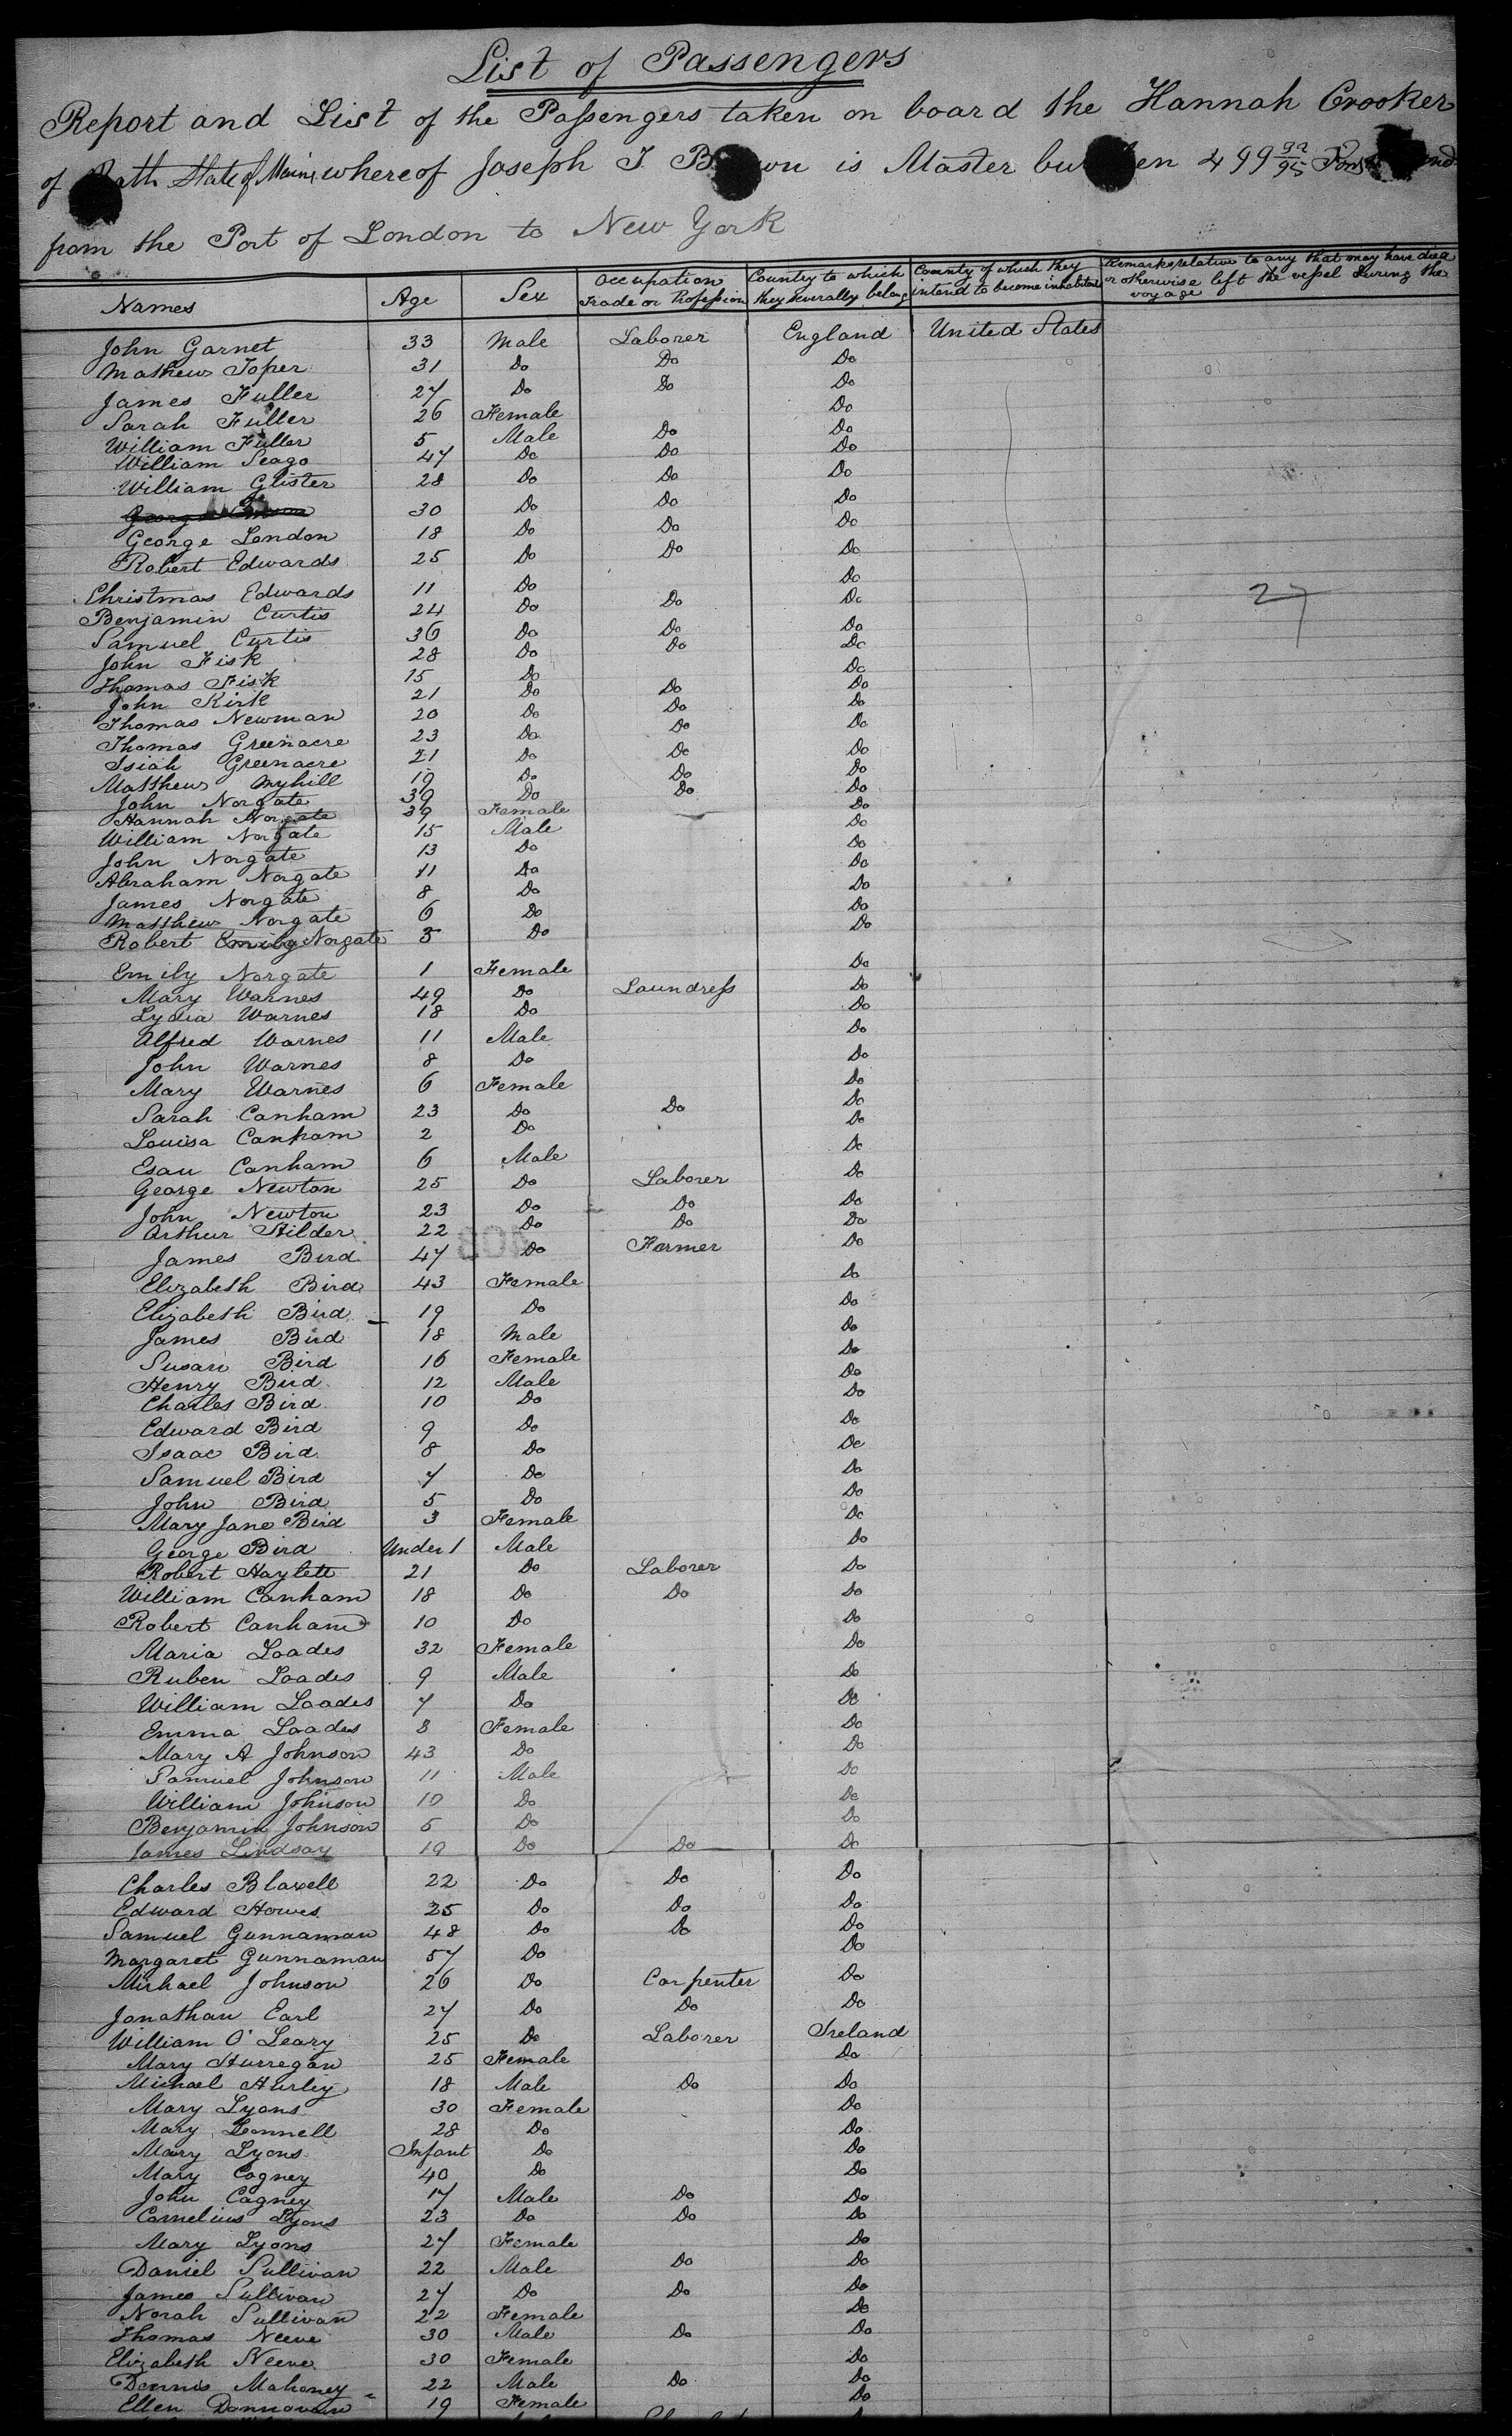 List of Passengers
Report and List of the Passengers taken on board the Hannah Crooker
of Bath State of Maine whereof Joseph J Brown is Master burthen 499 92/95 Tons
from the Port of London to New York
Names Age Sex Occupation Trade or Profession Country to which they severally belong Country of which they intend to become inhabitants Remarks relative to any that may have died or otherwise left the vessel during the voyage
John Garnet 33 Male Laborer England United States
Mathew Toper 31 Do Do Do
James Fuller 27 Do Do Do
Sarah Fuller 26 Female Do
William Fuller 5 Male Do Do
William Seago 47 Do Do Do
William Glister 28 Do Do Do
George 30 Do Do Do
George London 18 Do Do Do
Robert Edwards 25 Do Do Do
Christmas Edwards 11 Do Do
27
Benjamin Curtis 24 Do Do Do
Samuel Curtis 36 Do Do Do
John Fisk 28 Do Do Do
Thomas Fisk 15 Do Do
John Kirk 21 Do Do Do
Thomas Newman 20 Do Do Do
Thomas Greenacre 23 Do Do Do
Isiah Greenacre 21 Do Do Do
Matthew Myhill 19 Do Do Do
John Norgate 39 Do Do Do
Hannah Norgate 39 Female Do
William Norgate 15 Male Do
John Norgate 13 Do Do
Abraham Norgate 11 Do Do
James Norgate 8 Do Do
Matthew Norgate 6 Do Do
Robert Emily Norgate 3 Do Do
Emily Norgate 1 Female Do
Mary Warnes 49 Do Laundress Do
Lydia Warnes 18 Do Do
Alfred Warnes 11 Male Do
John Warnes 8 Do Do
Mary Warnes 6 Female Do
Sarah Canham 23 Do Do Do
Louisa Canham 2 Do Do
Esau Canham 6 Male Do
George Newton 25 Do Laborer Do
John Newton 23 Do Do Do
Arthur Hilder 22 Do Do Do
James Bird 47 Do Farmer Do
Elizabeth Bird 43 Female Do
Elizabeth Bird 19 Do Do
James Bird 18 Male Do
Susan Bird 16 Female Do
Henry Bird 12 Male Do
Charles Bird 10 Do Do
Edward Bird 9 Do Do
Isaac Bird 8 Do Do
Samuel Bird 7 Do Do
John Bird 5 Do Do
Mary Jane Bird 3 Female Do
George Bird Under 1 Male Do
Robert Haylett 21 Do Laborer Do
William Canham 18 Do Do Do
Robert Canham 10 Do Do
Maria Loades 32 Female Do
Ruben Loades 9 Male Do
William Loades 7 Do Do
Emma Loades 3 Female Do
Mary A Johnson 43 Do Do
Samuel Johnson 11 Male Do
William Johnson 10 Do Do
Benjamin Johnson 5 Do Do
James Lindsay 19 Do Do Do
Charles Blaxell 22 Do Do Do
Edward Howes 25 Do Do Do
Samuel Gunnaman 48 Do Do Do
Margaret Gunnaman 57 Do Do
Michael Johnson 26 Do Carpenter Do
Jonathan Earl 27 Do Do Do
William O'Leary 25 Do Laborer Ireland
Mary Hurregan 25 Female Do
Michael Hurley 18 Male Do Do
Mary Lyons 30 Female Do
Mary Lennell 28 Do Do
Mary Lyons Infant Do Do
Mary Cagney 40 Do Do
John Cagney 17 Male Do Do
Cornelius Lyons 23 Do Do Do
Mary Lyons 27 Female Do
Daniel Sullivan 22 Male Do Do
James Sullivan 27 Do Do Do
Norah Sullivan 22 Female Do
Thomas Neeve 30 Male Do Do
Elizabeth Neeve 30 Female Do
Dennis Mahoney 22 Male Do Do
Ellen Donnovan 19 Female Do